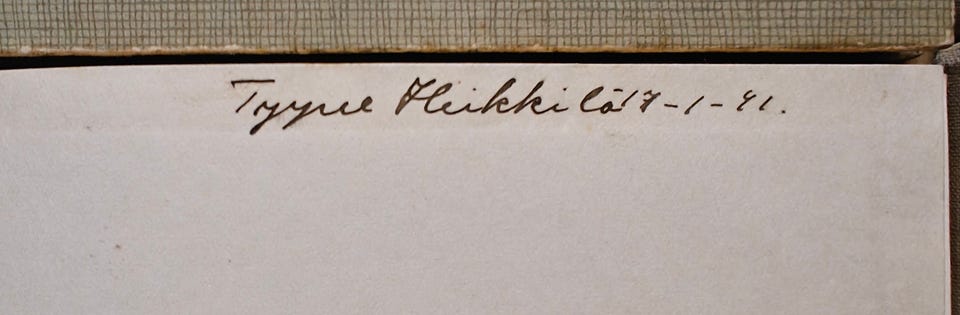 Tyyne Heikkilä 17-1-41.